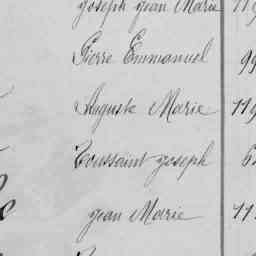 Joseph Jean Marie 119
Pierre Emmanuel 99
Auguste Marie 119
Toussaint Joseph 6
Jean Marie 11